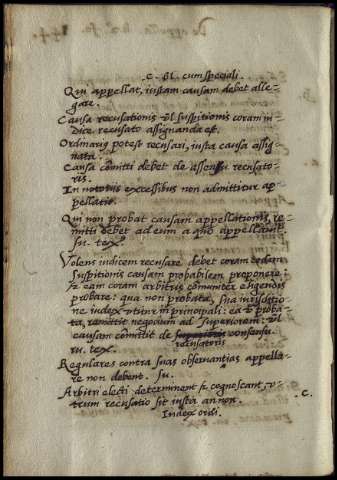 De appella. Rub. fo. 144.
C. Vl. cum speciali
Qui appellat, iustam causam debet alle=
gare,
Causa recusationis vl suspitionis coram iu=
dice recusato assignanda est.
Ordinarius potest recusari, iusta causa assig
nata.
Causa comitti debet de assensu recusato=
ris.
In notoriis excessibus non admittitur ap=
pellatio.
Qui non probat causam appellationis, re=
mitti debet ad eum a quo appellavit
su. tex.
Volens iudicem recusare debet coram eodem
suspitionis causam probabilem proponere:
et eam coram arbitris comuniter eligendis
probare: qua non probata, sua iurisdictio
ne iudex vtitur in principali: ea vo proba=
ta, remittit negocium ad superiorem: vl
causam comittit de consensu
recusatoris
su. tex.
Regulares contra suas observantias appella
re non debent. su.
Arbitri electi determinent et cognoscant, v=
trum recusatio sit iusta an non. C.
Iudex ordi.